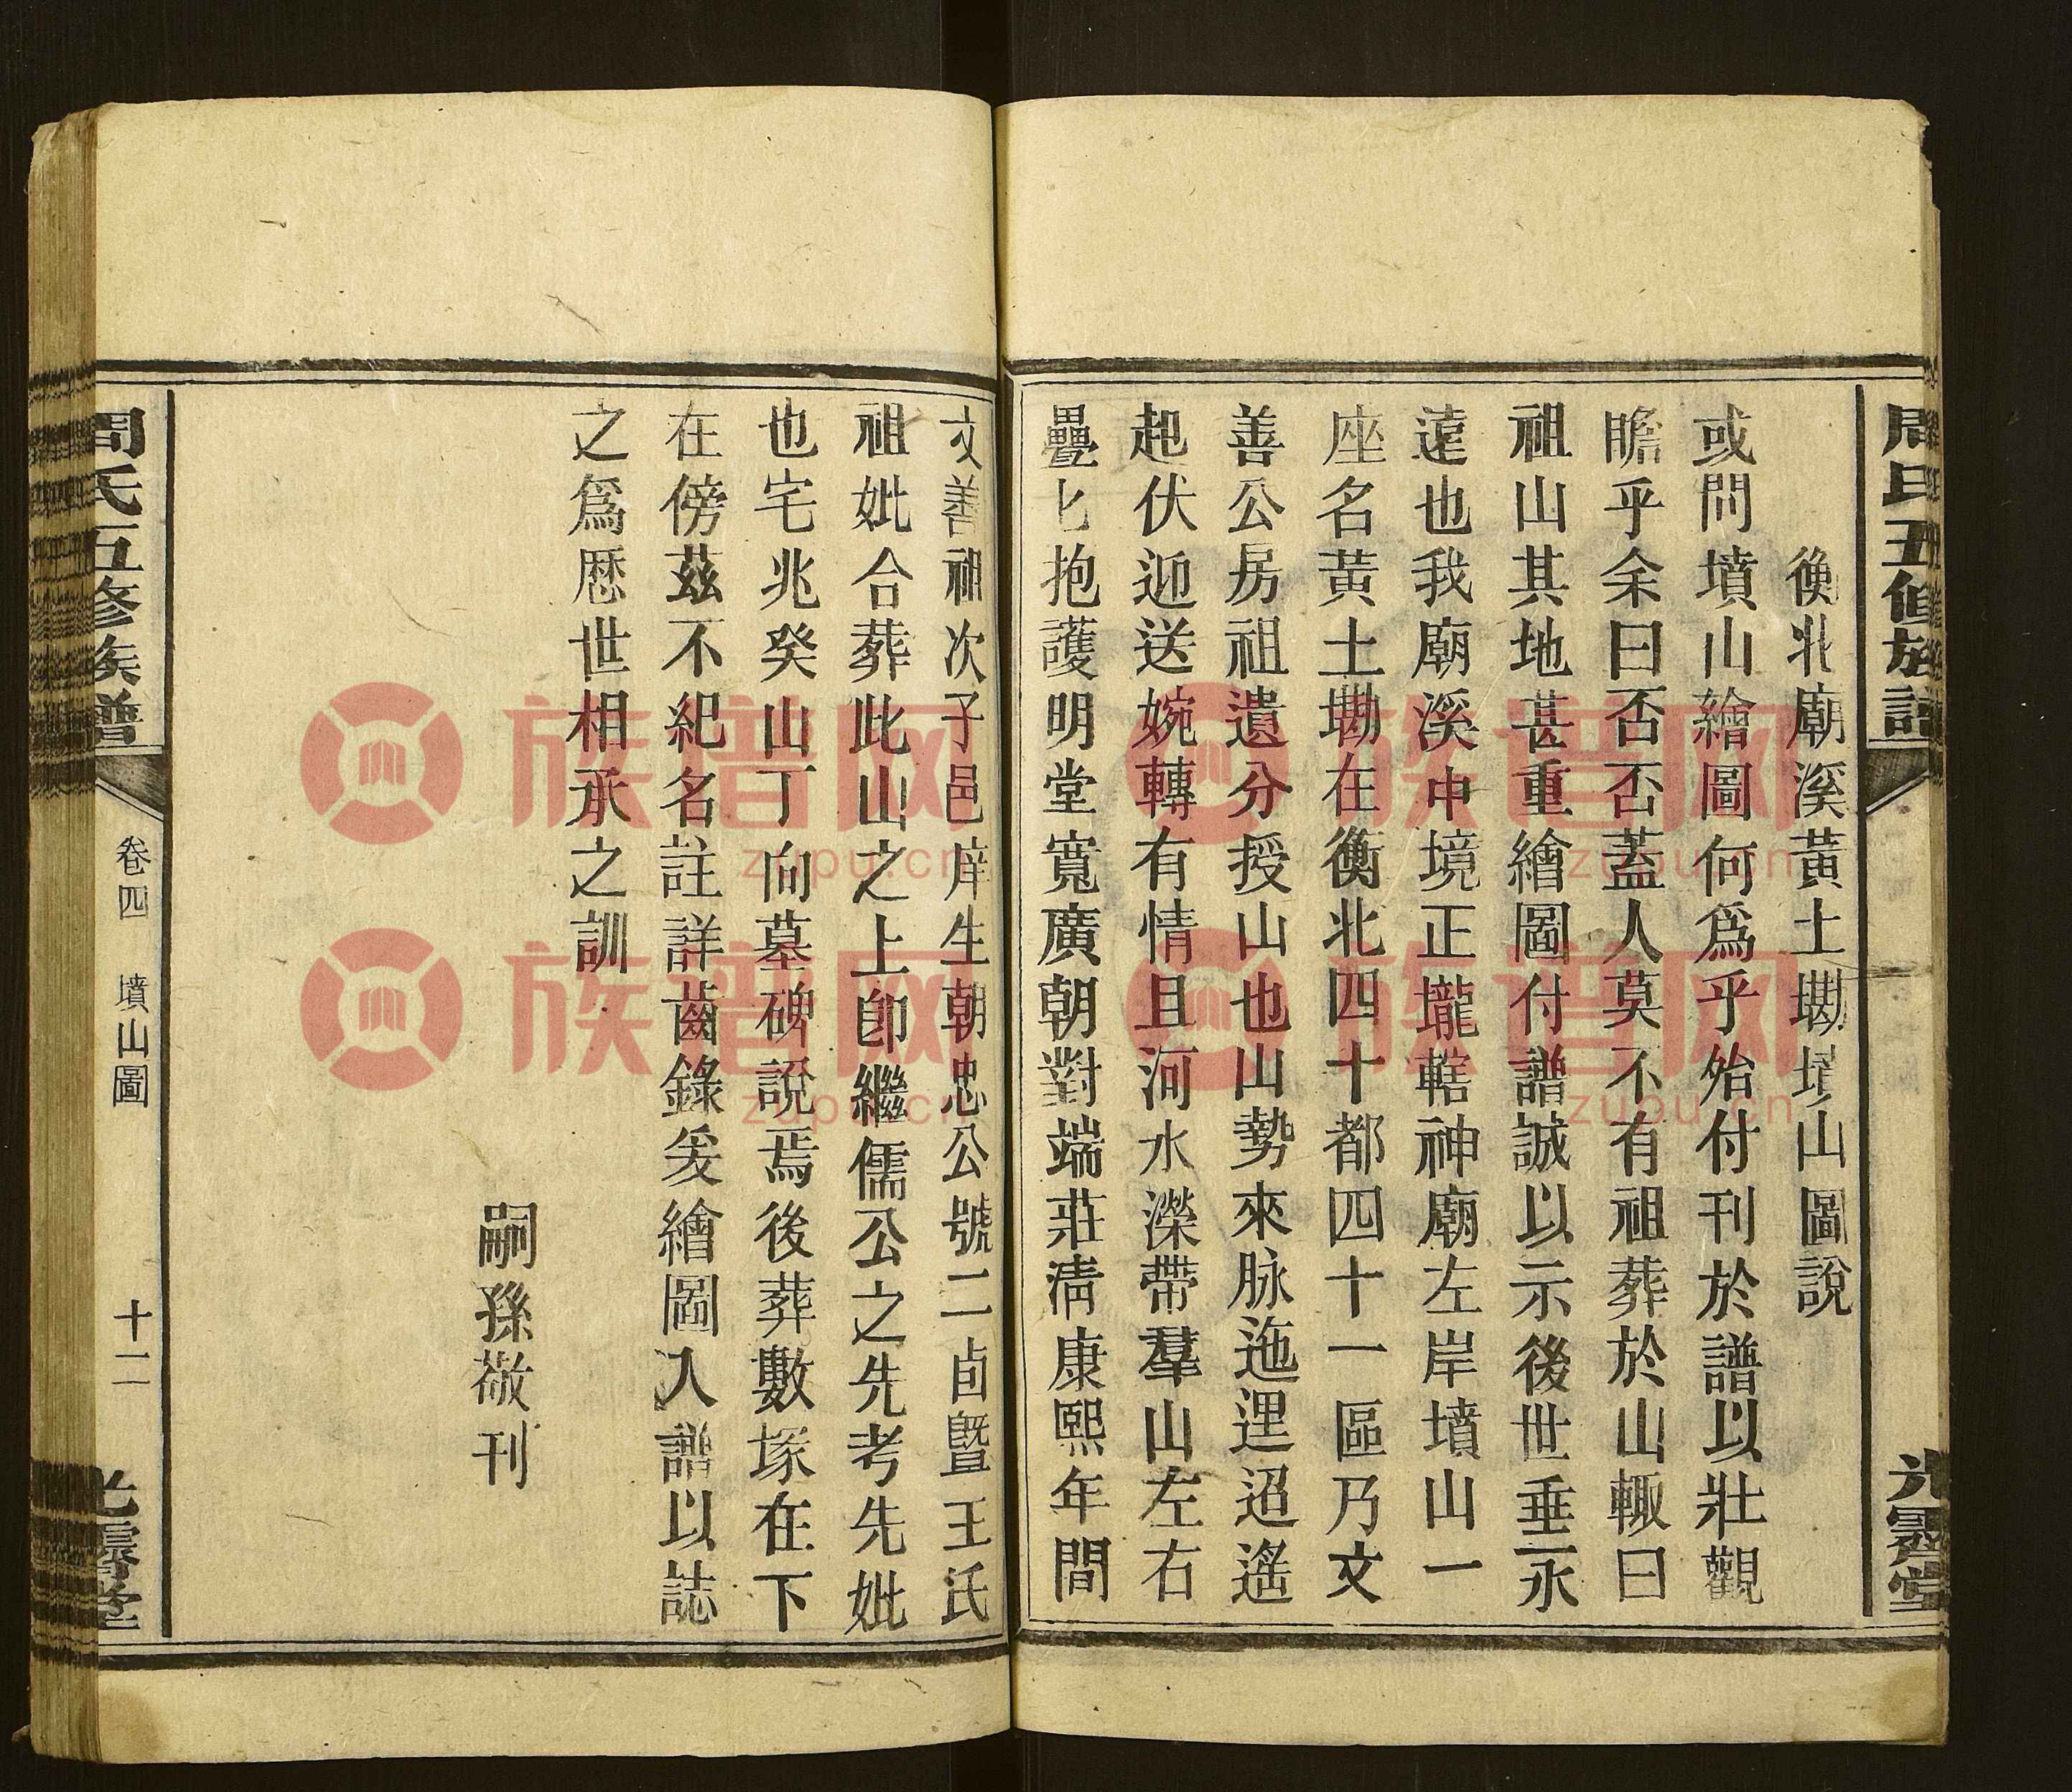 周氏五修族譜
光霽堂
衡北廟溪黃土墈墳山圖說
或問墳山繪圖何爲乎始付刊於譜以壯觀
瞻乎余曰否否蓋人莫不有祖葬於山輙曰
祖山其地甚重繪圖付譜誠以示後世垂永
遠也我廟溪中境正壠轄神廟左岸墳山一
座名黃土墈在衡北四十都四十一區乃文
善公房祖遺分授山也山勢來脉迤逕迢遙
起伏迎送婉轉有情且河水濚帶羣山左右
疊匕抱護明堂寬廣朝對端莊淸康熙年間
文善祖次子邑庠生朝忠公號二卣曁王氏
祖妣合葬此山之上卽繼儒公之先考先妣
也宅兆癸山丁向墓碑說焉後葬數塚在下
在傍茲不紀名註詳齒錄爰繪圖入譜以誌
之爲厯世相承之訓
嗣孫敬刊
周氏五修族譜
卷四 墳山圖
十二
光霽堂
族谱网
zupu.cn
族谱网
zupu.cn
族谱网
zupu.cn
族谱网
zupu.cn